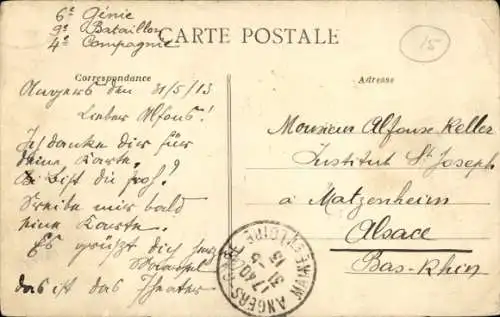 6e Génie
9e Bataillon
4e Compagnie
CARTE POSTALE
15
Correspondance
Adresse
Angers den 31/5/13
Lieber Alfons!
Ich danke dir für
deine Karte.
Bist du froh?
Schreibe mir bald
eine Karte.
Es grüßt dich
das ist das Theater
Monsieur Alfonse Keller
Institut St Joseph
à Matzenheim
Alsace
Bas-Rhin
ANGERS GARE
MAINE-ET-LOIRE
17 40
31 - 5